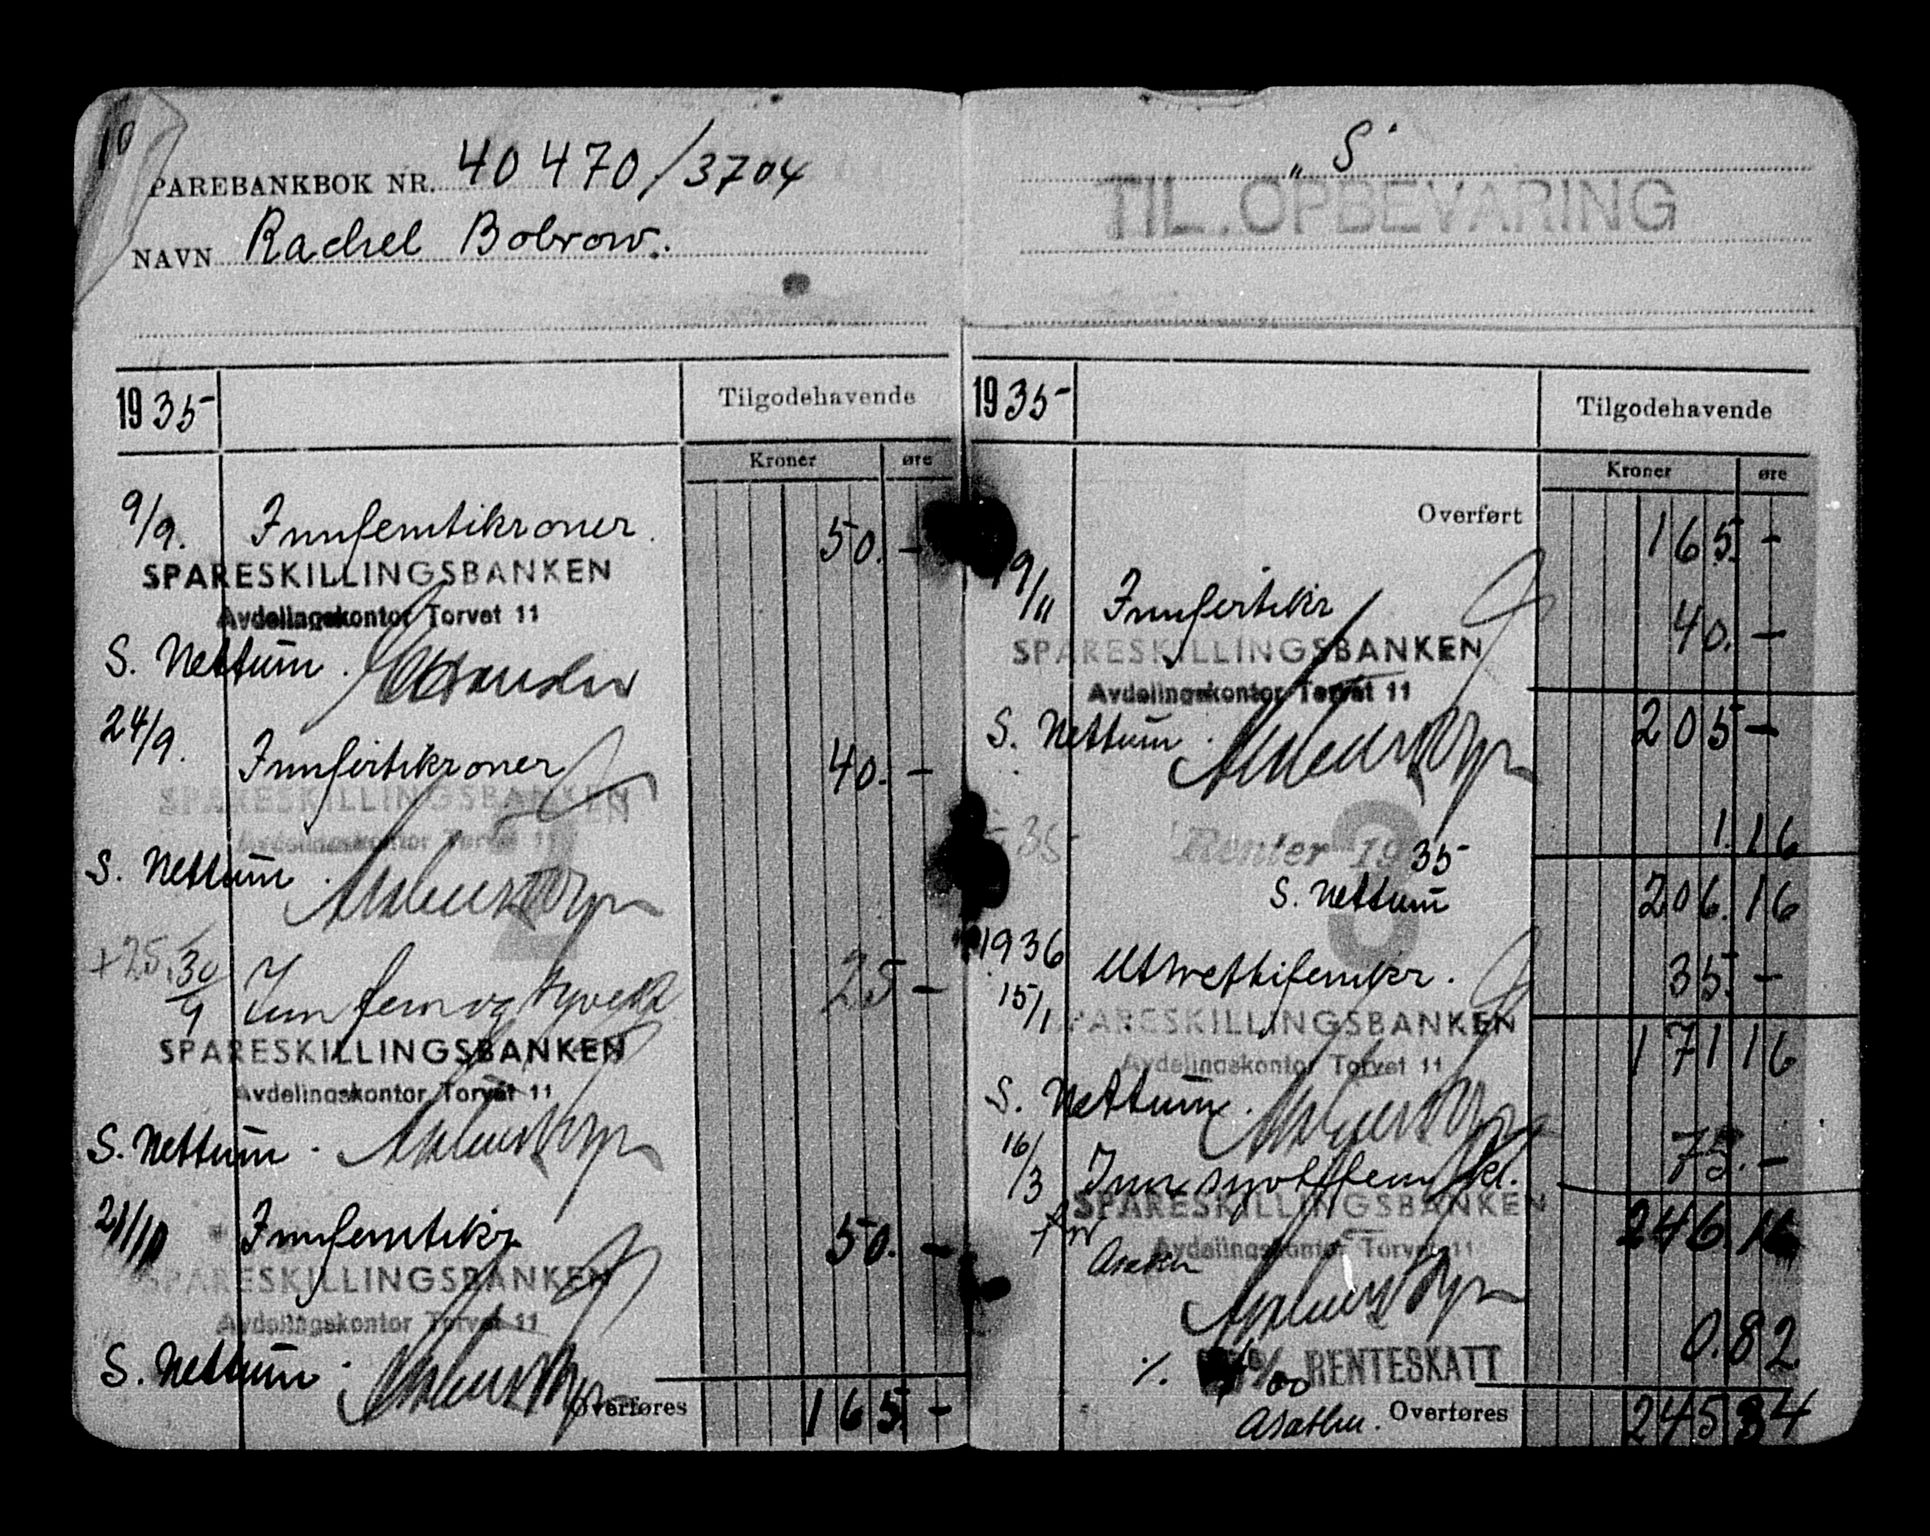 10
SPAREBANKBOK NR. 40470/3704
NAVN Rachel Bobrow.
1935
Tilgodehavende
Kroner øre
9/9. Innfemtikroner. 50.-
SPARESKILLINGSBANKEN
Avdelingskontor Torvet 11
S. Nettum.
24/9. Innførtikroner 40.-
SPARESKILLINGSBANKEN
Avdelingskontor Torvet 11
S. Nettum.
2
+25. 30/9 Inn fem og tyve kr. 25-
SPARESKILLINGSBANKEN
Avdelingskontor Torvet 11
S. Nettum.
21/10 Innfemtikr 50.-
SPARESKILLINGSBANKEN
Avdelingskontor Torvet 11
S. Nettum.
Overføres 165.-
"S"
TIL OPBEVARING
1935
Tilgodehavende
Kroner øre
Overført 165.-
19/11 Innførtikr 40.-
SPARESKILLINGSBANKEN
Avdelingskontor Torvet 11
205-
S. Nettum.
3
35- Renter 1935 1.16
S. Nettum 206.16
1936
15/1 Uttrettifemkr. 35.-
SPARESKILLINGSBANKEN
Avdelingskontor Torvet 11
171 16
S. Nettum.
16/3 Inn syvttifem kr. 75.-
SPARESKILLINGSBANKEN
for
Avdelingskontor Torvet 11
246.16
0.82
% 00 RENTESKATT
Overføres 245.34